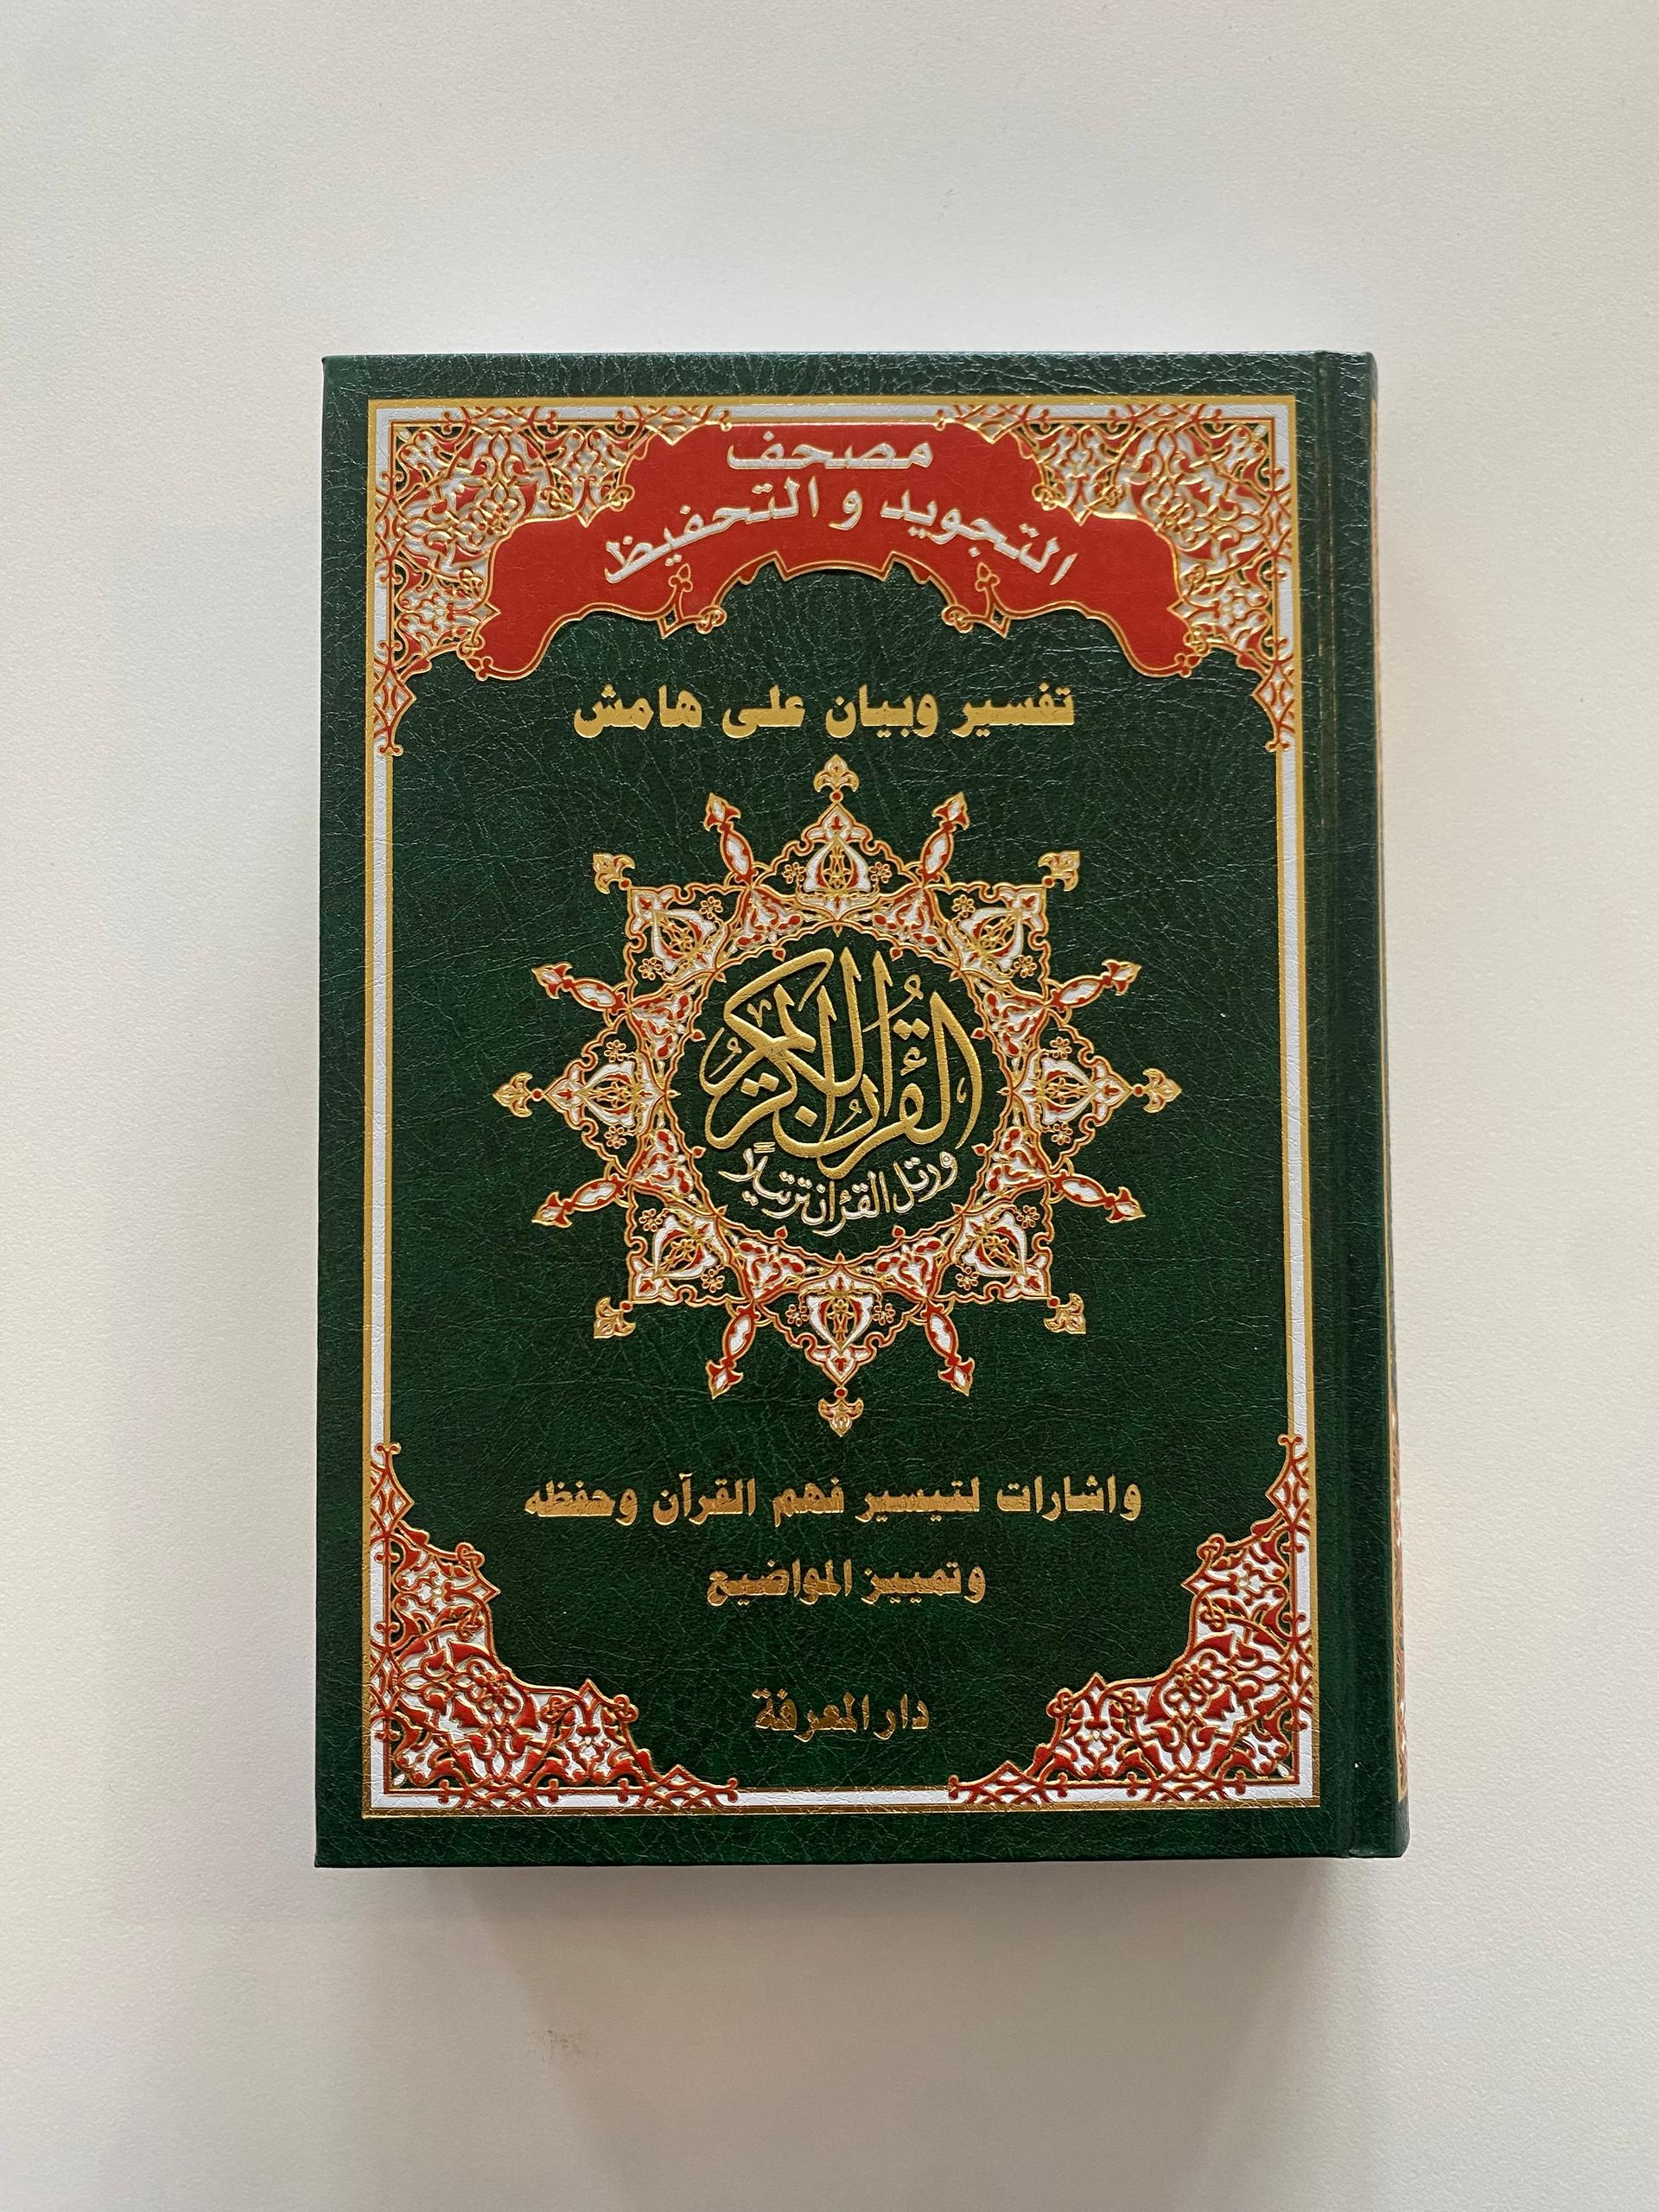 مصحف
التجويد والتحفيظ
تفسير وبيان على هامش
القرآن الكريم
ورتل القرءان ترتيلًا
واشارات لتيسير فهم القرآن وحفظه
وتمييز المواضيع
دار المعرفة